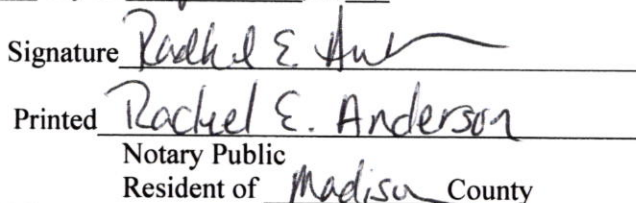 Signature Rachel E.
Printed Rachel E. Anderson
Notary Public
Resident of Madison County